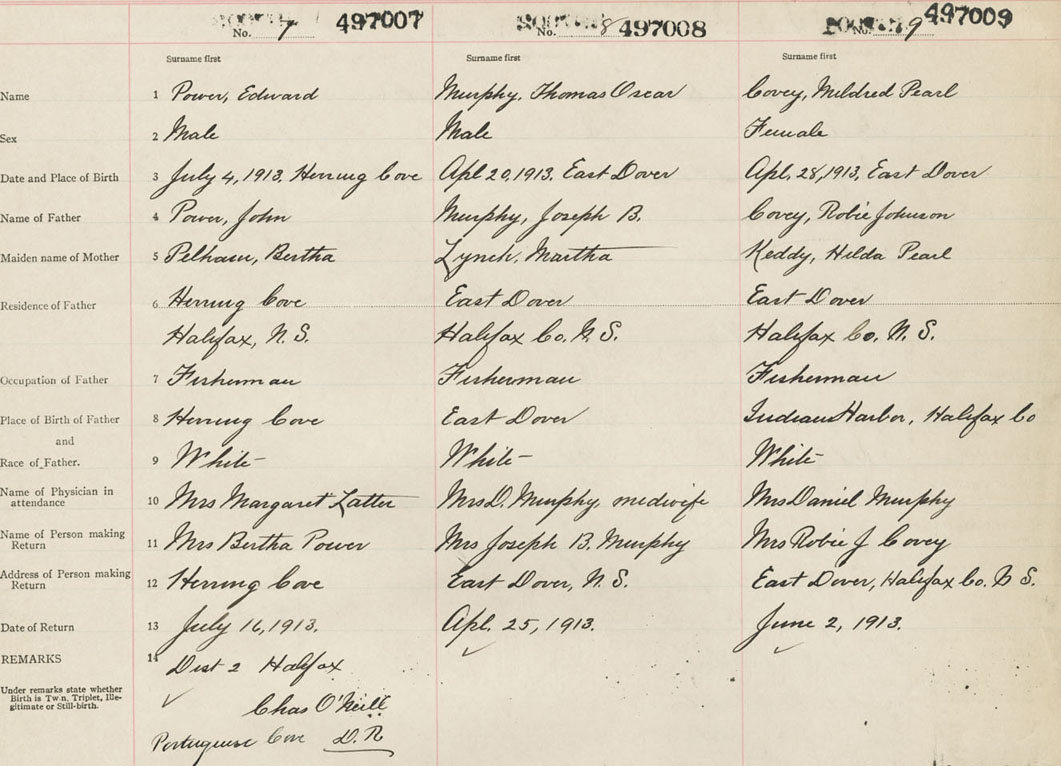 No. 7 497007 No. 8 497008 No. 9 497009
Surname first Surname first Surname first
Name 1 Power, Edward Murphy, Thomas Oscar Covey, Mildred Pearl
Sex 2 Male Male Female
Date and Place of Birth 3 July 4, 1913, Herring Cove Apl 20, 1913, East Dover Apl. 28, 1913, East Dover
Name of Father 4 Power, John Murphy, Joseph B. Covey, Robie Johnson
Maiden name of Mother 5 Pelham, Bertha Lynch, Martha Keddy, Hilda Pearl
Residence of Father 6 Herring Cove East Dover East Dover
Halifax, N. S. Halifax Co. N. S. Halifax Co. N. S.
Occupation of Father 7 Fisherman Fisherman Fisherman
Place of Birth of Father 8 Herring Cove East Dover Indian Harbor, Halifax Co
and
Race of Father. 9 White White White
Name of Physician in
attendance 10 Mrs Margaret Latter Mrs D. Murphy, midwife Mrs Daniel Murphy
Name of Person making
Return 11 Mrs Bertha Power Mrs Joseph B. Murphy Mrs Robie J Covey
Address of Person making
Return 12 Herring Cove East Dover, N. S. East Dover, Halifax Co. N S.
Date of Return 13 July 16, 1913. Apl. 25, 1913. June 2, 1913.
REMARKS 14 Dist 2 Halifax
Under remarks state whether
Birth is Twin, Triplet, Ille-
gitimate or Still-birth.
Chas O'Neill
Portuguese Cove D. R